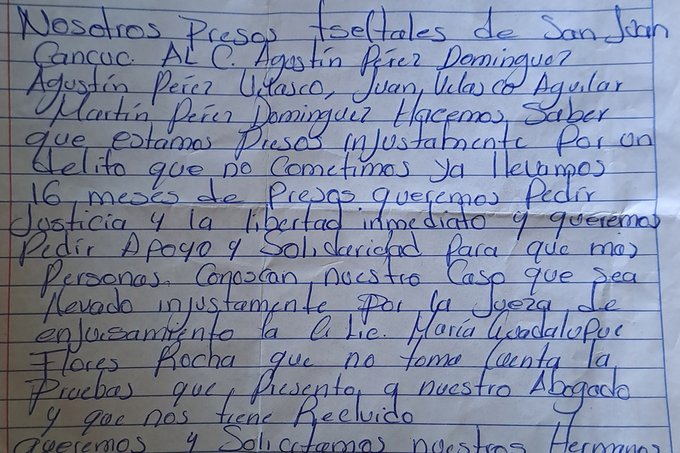 Nosotros Presos tseltales de San Juan
Cancuc. AL C. Agustín Pérez Dominguez
Agustín Pérez Velasco, Juan, Velasco Aguilar
Martín Pérez Dominguez Hacemos Saber
que, estamos Presos injustamente Por un
delito que no Cometimos ya llevamos
16, meses de Presos queremos Pedir
Justicia y la libertad inmediato y queremos
Pedir Apoyo y Solidaridad Para que mas
Personas Conoscan, nuestro Caso que sea
llevado injustamente por la Jueza de
enjuisamiento la C. Lic. María Guadalupue
Flores Rocha que no toma Cuenta la
Pruebas que, Presento, a nuestro Abogado
y que nos tiene Recluido
queremos y Solicitamos nuestros Hermanos